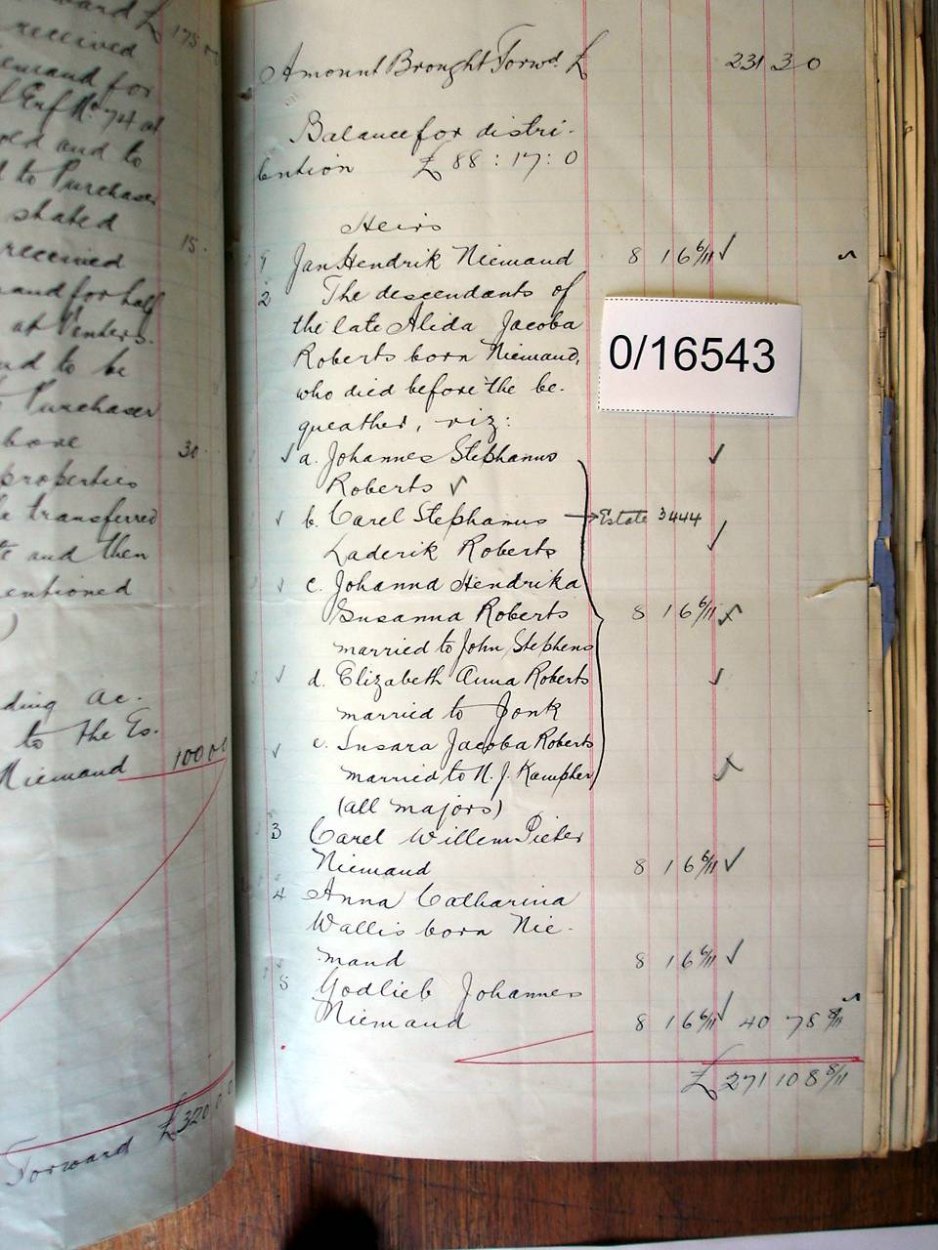 ward £ 175
received
emand for
f Erf No. 74 at
old and to
d to Purchaser
stated
15.
received
and for half
at Venters.
nd to be
Purchaser
bove
30.
properties
e transferred
te and then
entioned
)
ding ac.
to the Es.
Niemand 100 0 0
Forward £320 0 0
Amount Brought Forwd. £ 231 3 0
Balance for distri-
bution £ 88 : 17 : 0
Heirs
1 Jan Hendrik Niemand 8 1 6 6/11 ✓
2 The descendants of
the late Alida Jacoba
Roberts born Niemand,
who died before the be-
queather, viz:
0/16543
✓ a. Johannes Stephanus ✓
Roberts ✓
✓ b. Carel Stephanus → Estate 3444
Laderik Roberts ✓
✓ c. Johanna Hendrika
Susanna Roberts 8 1 6 6/11
married to John Stephens
✓ d. Elizabeth Anna Roberts ✓
married to Jonk
✓ e. Susara Jacoba Roberts
married to N. J. Kampher
(all majors)
3 Carel Willem Pieter
Niemand 8 1 6 6/11 ✓
4 Anna Catharina
Wallis born Nie-
mand 8 1 6 6/11 ✓
5 Godlieb Johannes
Niemand 8 1 6 6/11 ✓ 40 7 8 8/11
£ 271 10 8 8/11